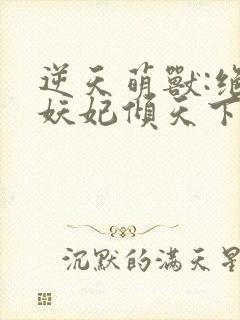 逆天萌獸:絕
妖妃傾天下
沉默的滿天星